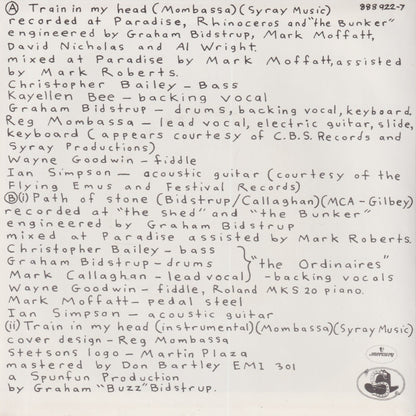 Ⓐ Train in my head (Mombassa)(Syray Music) 888 922-7
recorded at Paradise, Rhinoceros and "the Bunker"
engineered by Graham Bidstrup, Mark Moffatt,
David Nicholas and Al Wright.
mixed at Paradise by Mark Moffatt, assisted
by Mark Roberts.
Christopher Bailey - Bass
Kayellen Bee - backing vocal
Graham Bidstrup - drums, backing vocal, keyboard.
Reg Mombassa - lead vocal, electric guitar, slide,
keyboard (appears courtesy of C.B.S. Records and
Syray Productions)
Wayne Goodwin - fiddle
Ian Simpson - acoustic guitar (courtesy of the
Flying Emus and Festival Records)
Ⓑ(i) Path of stone (Bidstrup/Callaghan)(MCA-Gilbey)
recorded at "the shed" and "the Bunker"
engineered by Graham Bidstrup
mixed at Paradise assisted by Mark Roberts.
Christopher Bailey - bass
Graham Bidstrup - drums } "the Ordinaires"
Mark Callaghan - lead vocal - backing vocals
Wayne Goodwin - fiddle, Roland MKS 20 piano.
Mark Moffatt - pedal steel
Ian Simpson - acoustic guitar
(ii) Train in my head (instrumental)(Mombassa)(Syray Music)
cover design - Reg Mombassa
Stetsons logo - Martin Plaza
mastered by Don Bartley EMI 301
a Spunfun Production
by Graham "Buzz" Bidstrup.
mercury